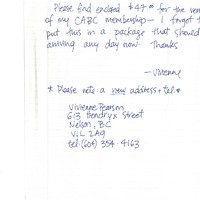 Please find enclosed $47.00 for the
of my CABC membership — I forgot
put this in a package that should
arriving any day now. Thanks
— Vivienne
* Please note a new address + tel. *
Vivienne Pearson
613 Hendryx Street
Nelson, BC
V1L 2A9
tel: (604) 354-4163